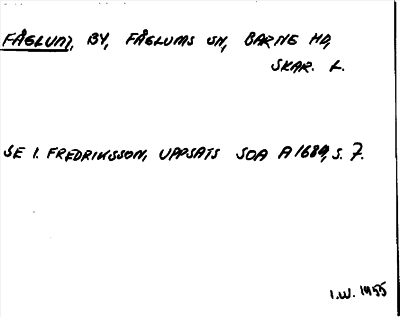 FÅGLUM, BY, FÅGLUMS SN, BARNE HD,
SKAR. L.
SE I. FREDRIKSSON, UPPSATS SOA A1689, S. 7.
I.W. 1955